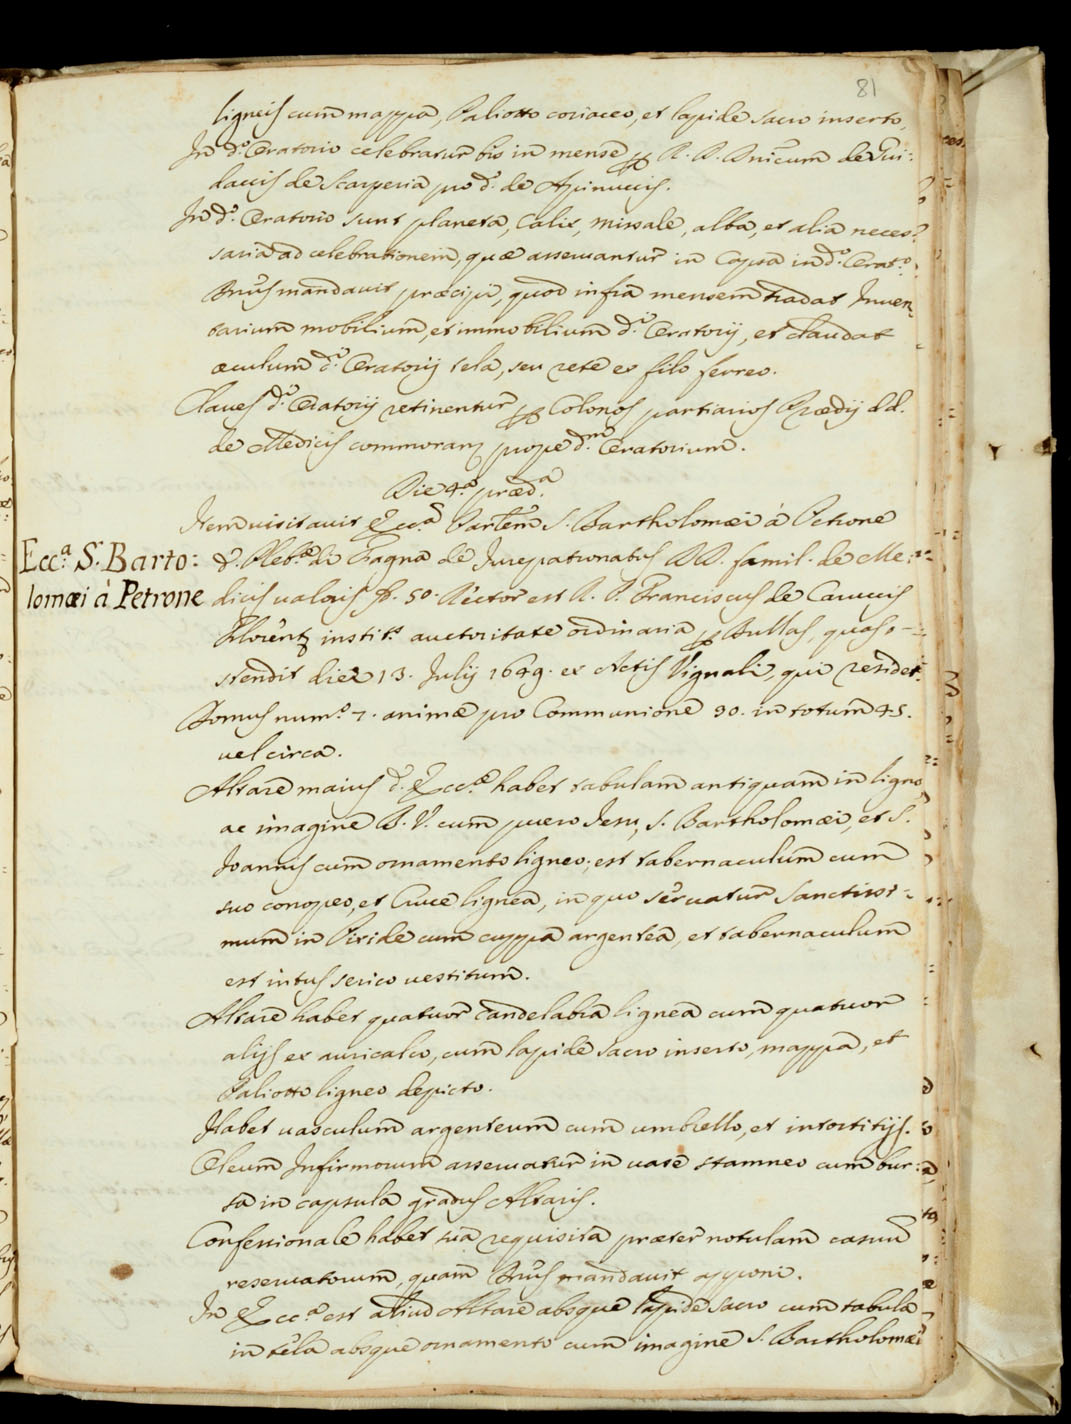 81
ligneis cum mappa, Paliotto coriaceo, et lapide sacro inserto,
In d.º Oratorio celebratur bis in mense per R. D. Dnicum de Gui:
daccis de Scarperia pro d. de Apinuccis.
In d.º Oratorio sunt planeta, Calix, missale, alba, et alia neces:
saria ad celebrationem, quæ asseruantur in Capsa in d.º Orat.º
Dnus mandauit præcipi, quod infra mensem tradat Inuen:
tarium mobilium, et immobilium d.i Oratorij, et claudat
oculum d.i Oratorij tela, seu rete ex filo ferreo.
Claues d.i Oratorij retinentur per Colonos partiarios Prædij dd.
de Medicis commoran. prope d.m Oratorium.
Die 4.a præd.a
Item uisitauit Ecc.a Parlem S. Bartholomæi à Petrone
Ecc.a S. Barto:
lomæi à Petrone
d. Pleb.e de Fagna de Iurepatronatus DD. famil. de Me:
dicis ualoris fl. 50. Rector est R. P. Franciscus de Caruccis
Florent. instit.s auctoritate ordinaria per Bullas, quas o-
stendit die 13. Julij 1649. ex Actis Vignali, qui residet.
Domus num.o 7. animæ pro Communione 30. in totum 45.
uel circa.
Altare maius d. Ecc.æ habet tabulam antiquam in ligno
ac imagine B. V. cum puero Iesu, S. Bartholomæi, et S.
Ioannis cum ornamento ligneo; est tabernaculum cum
suo conopeo, et Cruce lignea, in quo seruatur Sanctissi-
mum in Piride cum cuppa argentea, et tabernaculum
est intus serico uestitum.
Altare habet quatuor candelabra lignea cum quatuor
alijs ex auricalco, cum lapide sacro inserto, mappa, et
Paliotto ligneo depicto.
Habet uasculum argenteum cum umbrello, et intortitijs.
Oleum Infirmorum asseruatur in uase stamneo cum bur:
sa in capsula gradus Altaris.
Confessionale habet sua requisita præter notulam casuum
reseruatorum, quam Dnus mandauit apponi.
In Ecc.a est aliud Altare absque lapide sacro cum tabula
in tela absque ornamento cum imagine S. Bartholomæi